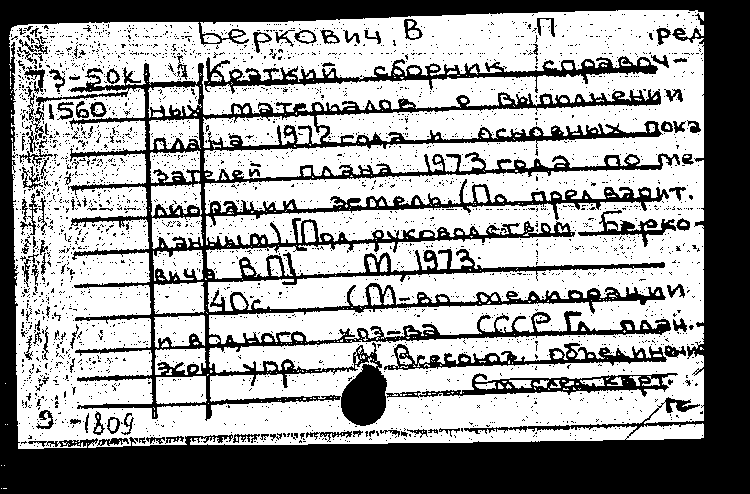 Беркович, В П ред
73-50К VI Краткий сборник справоч-
1560 ных материалов о выполнении
плана 1972 года и основных пока
зателей плана 1973 года по ме-
лиорации земель. (По предварит.
данным). [Под руководством Берко-
вича В.П]. М, 1973.
40с. (М-во мелиорации
и водного хоз-ва СССР Гл план.-
экон. упр. Всесоюз. объединение
См. след. карт.
9-1809